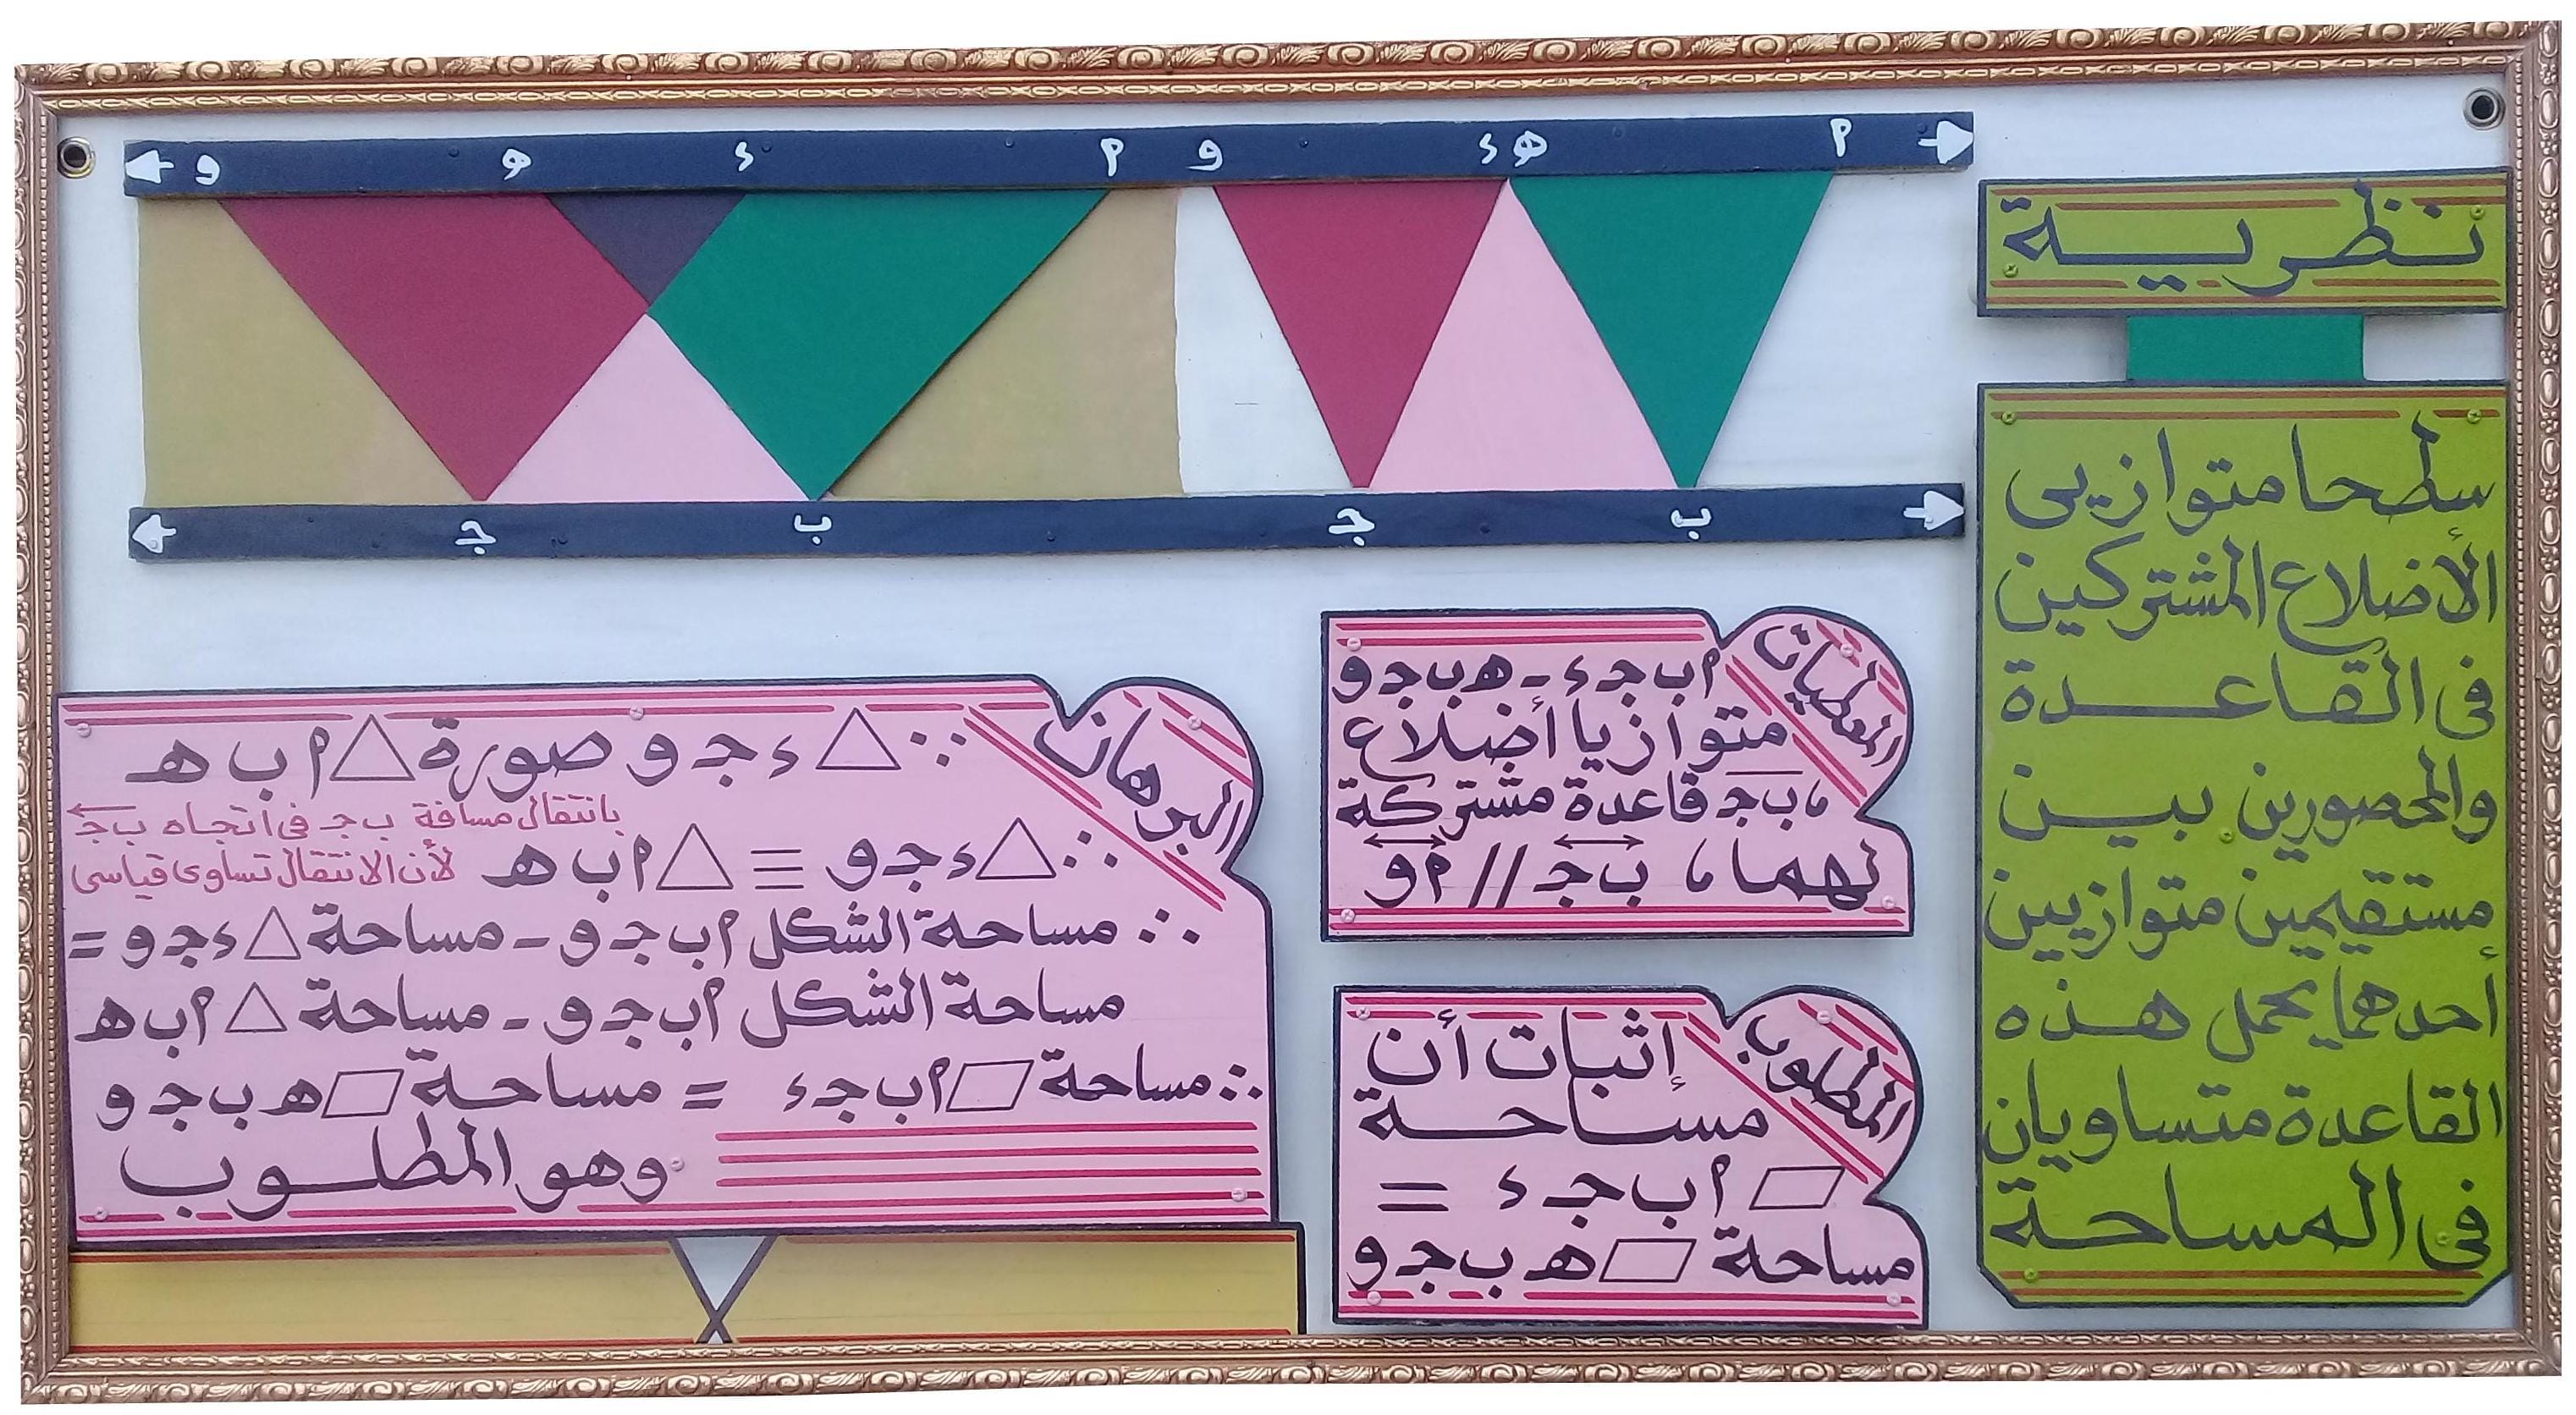 م ه ء و م ء ه و
ب ج ب ج
نظرية
سطحا متوازيى
الأضلاع المشتركين
فى القاعدة
والمحصورين بين
مستقيمين متوازيين
أحدهما يحمل هذه
القاعدة متساويان
فى المساحة
المعطيات
م ب ج ء - ه ب ج و
متوازيا أضلاع
، ب ج قاعدة مشتركة
لهما ، ب ج // م و
المطلوب
إثبات أن
مساحة
▱ م ب ج ء =
مساحة ▱ ه ب ج و
البرهان
∵ △ ء ج و صورة △ م ب ه
بانتقال مسافة ب ج فى اتجاه ب ج
∴ △ ء ج و ≡ △ م ب ه لأن الانتقال تساوى قياسى
∵ مساحة الشكل م ب ج و - مساحة △ ء ج و =
مساحة الشكل م ب ج و - مساحة △ م ب ه
∴ مساحة ▱ م ب ج ء = مساحة ▱ ه ب ج و
وهو المطلوب